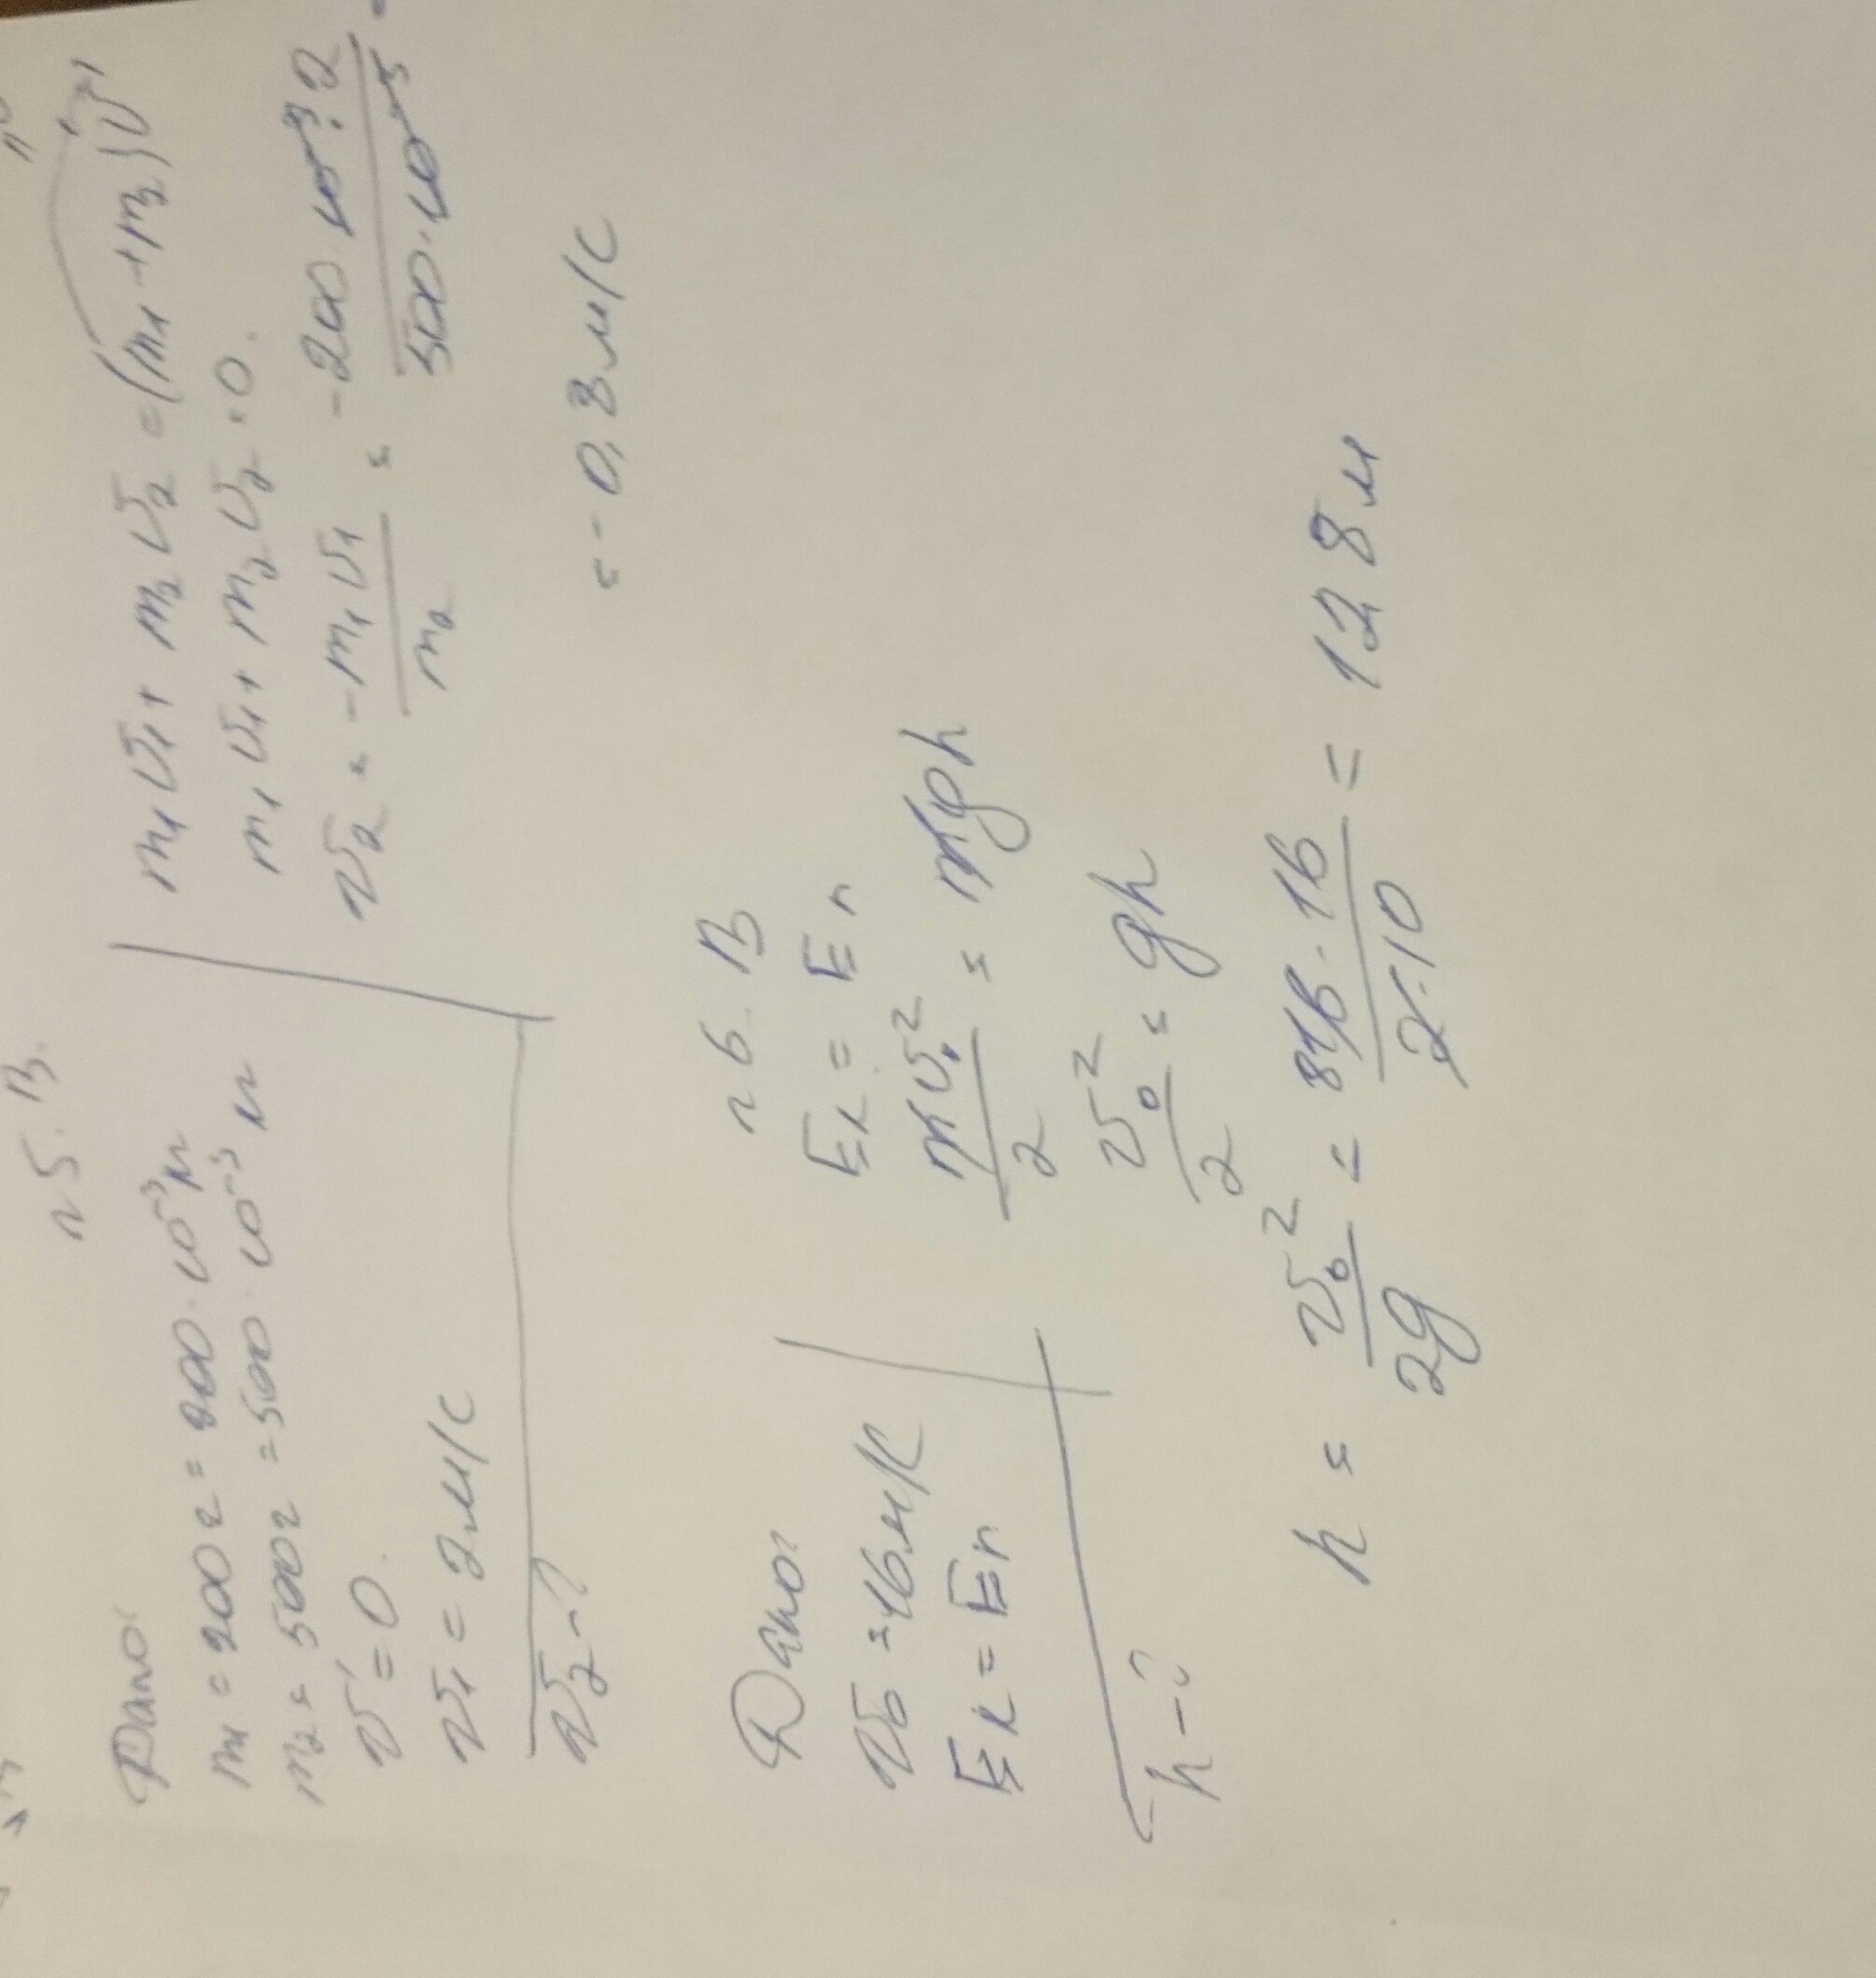 n5. В.
Дано:
m₁ = 200 г = 200 · 10⁻³ кг
m₂ = 500 г = 500 · 10⁻³ кг
v' = 0
v₁ = 2 м/с
v₂ - ?
m₁v₁ + m₂v₂ = (m₁ + m₂)v'
m₁v₁ + m₂v₂ = 0.
v₂ = -m₁v₁/m₂ = -200 · 10⁻³ · 2/500 · 10⁻³ =
= -0,8 м/с
n6. В
Дано:
v₀ = 16 м/с
Eк = Eп
h - ?
Eк = Eп
mv₀²/2 = mgh
v₀²/2 = gh
h = v₀²/2g = 8 16 · 16/2 · 10 = 12 8 м